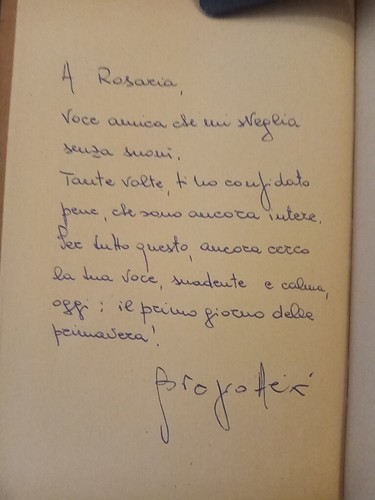 A Rosaria,
voce amica che mi sveglia
senza suoni.
Tante volte, ti ho confidato
pene, che sono ancora intere.
Per tutto questo, ancora cerco
la tua voce, suadente e calma,
oggi: il primo giorno della
primavera!